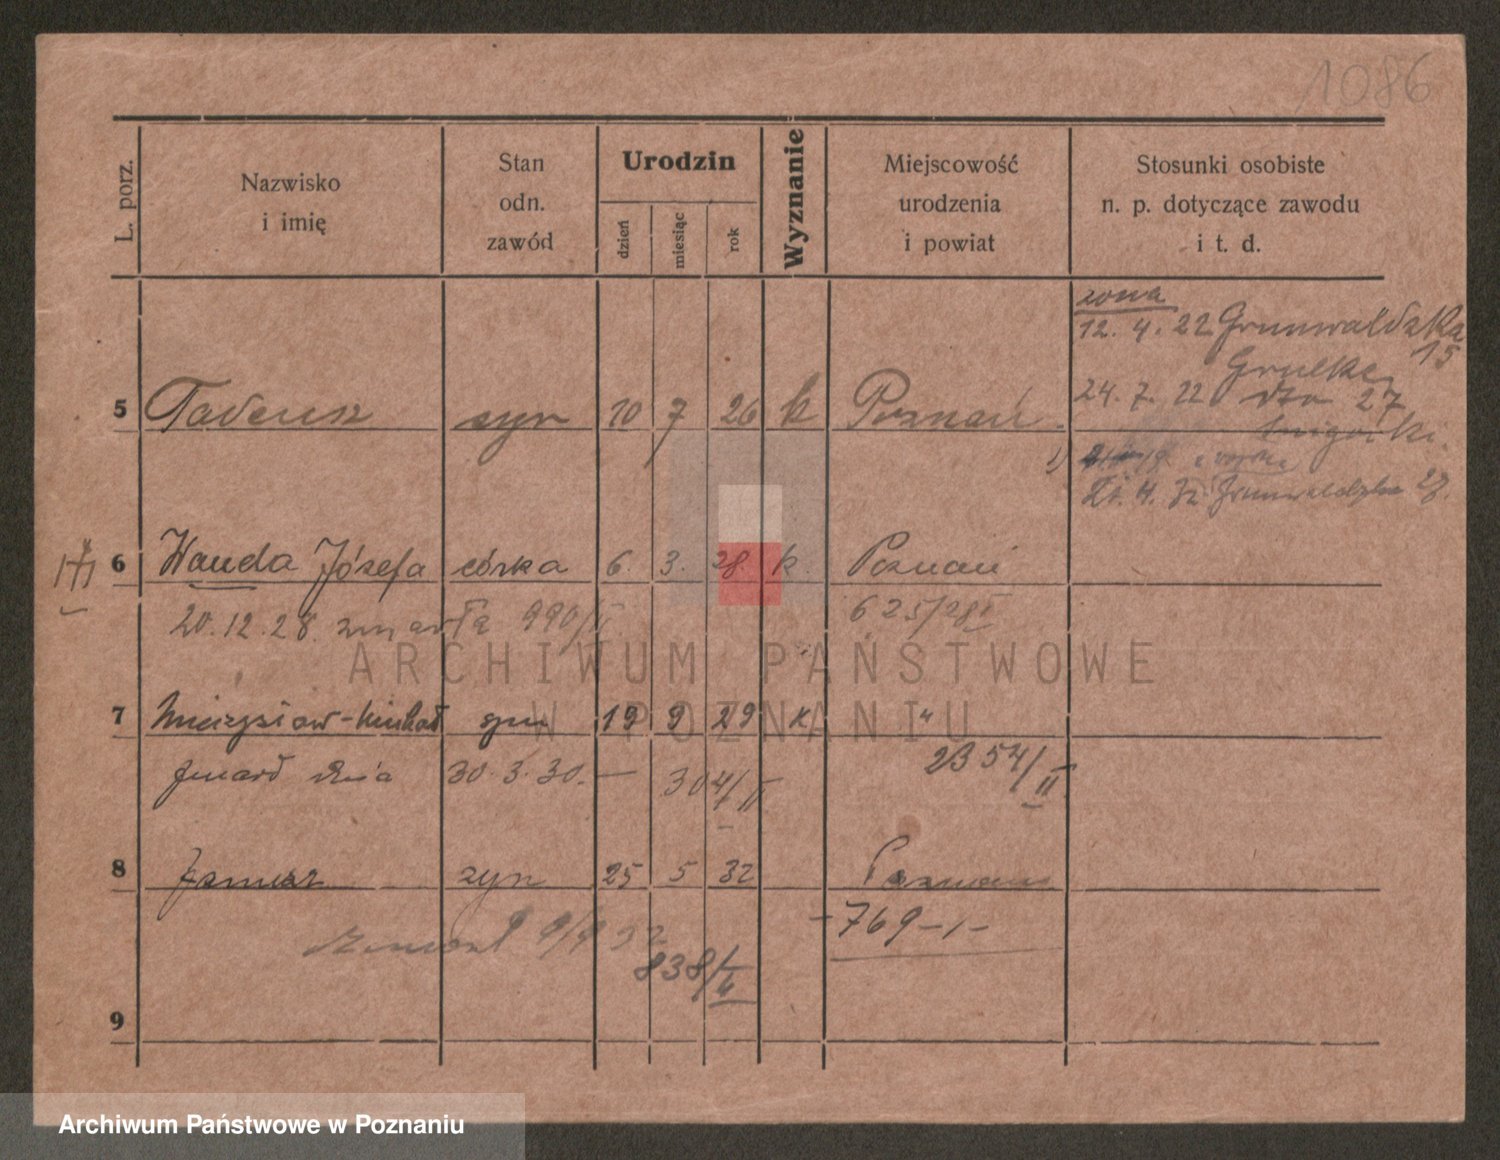 1086
L. porz.
Nazwisko
i imię
Stan
odn.
zawód
Urodzin
dzień
miesiąc
rok
Wyznanie
Miejscowość
urodzenia
i powiat
Stosunki osobiste
n. p. dotyczące zawodu
i t. d.
żona
12. 4. 22 Grunwaldzka
15
24. 7. 22 dto 27
5 Tadeusz syn 10 7 26 k Poznań
4. 32 Grunwaldzka
6 Wanda Józefa córka 6. 3. 28. k. Poznań
20.12.28. zmarła 990/II 625/28
7 Mieczysław-Michał syn 19 9 29 k "
zmarł dnia 30.3.30. — 304/II 2354/II
8 Janusz syn 25 5 32 Poznań
-769-1-
zmarł 9/9 32
838/II
9
ARCHIWUM PAŃSTWOWE
W POZNANIU
Archiwum Państwowe w Poznaniu